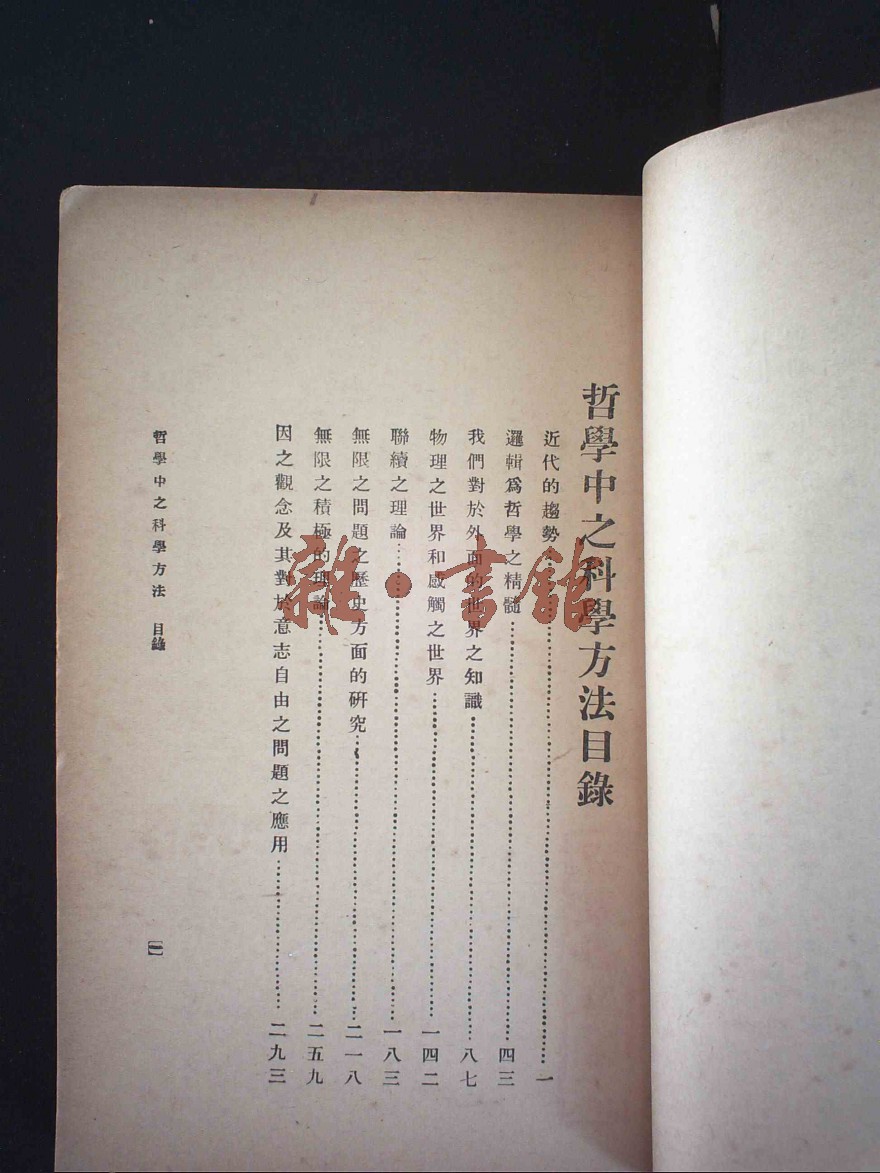 哲學中之科學方法目錄
近代的趨勢……一
邏輯爲哲學之精髓……四三
我們對於外面的世界之知識……八七
物理之世界和感觸之世界……一四二
聯續之理論……一八三
無限之問題之歷史方面的研究……二一八
無限之積極的理論……二五九
因之觀念及其對於意志自由之問題之應用……二九三
哲學中之科學方法 目錄
[一]
雜·書館